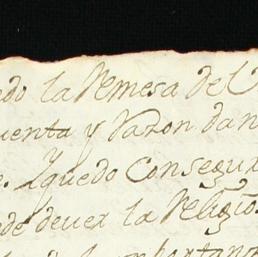 do la Remesa de
uenta y Razon dan
e. Y quedo Consegur
de deuer la Religio